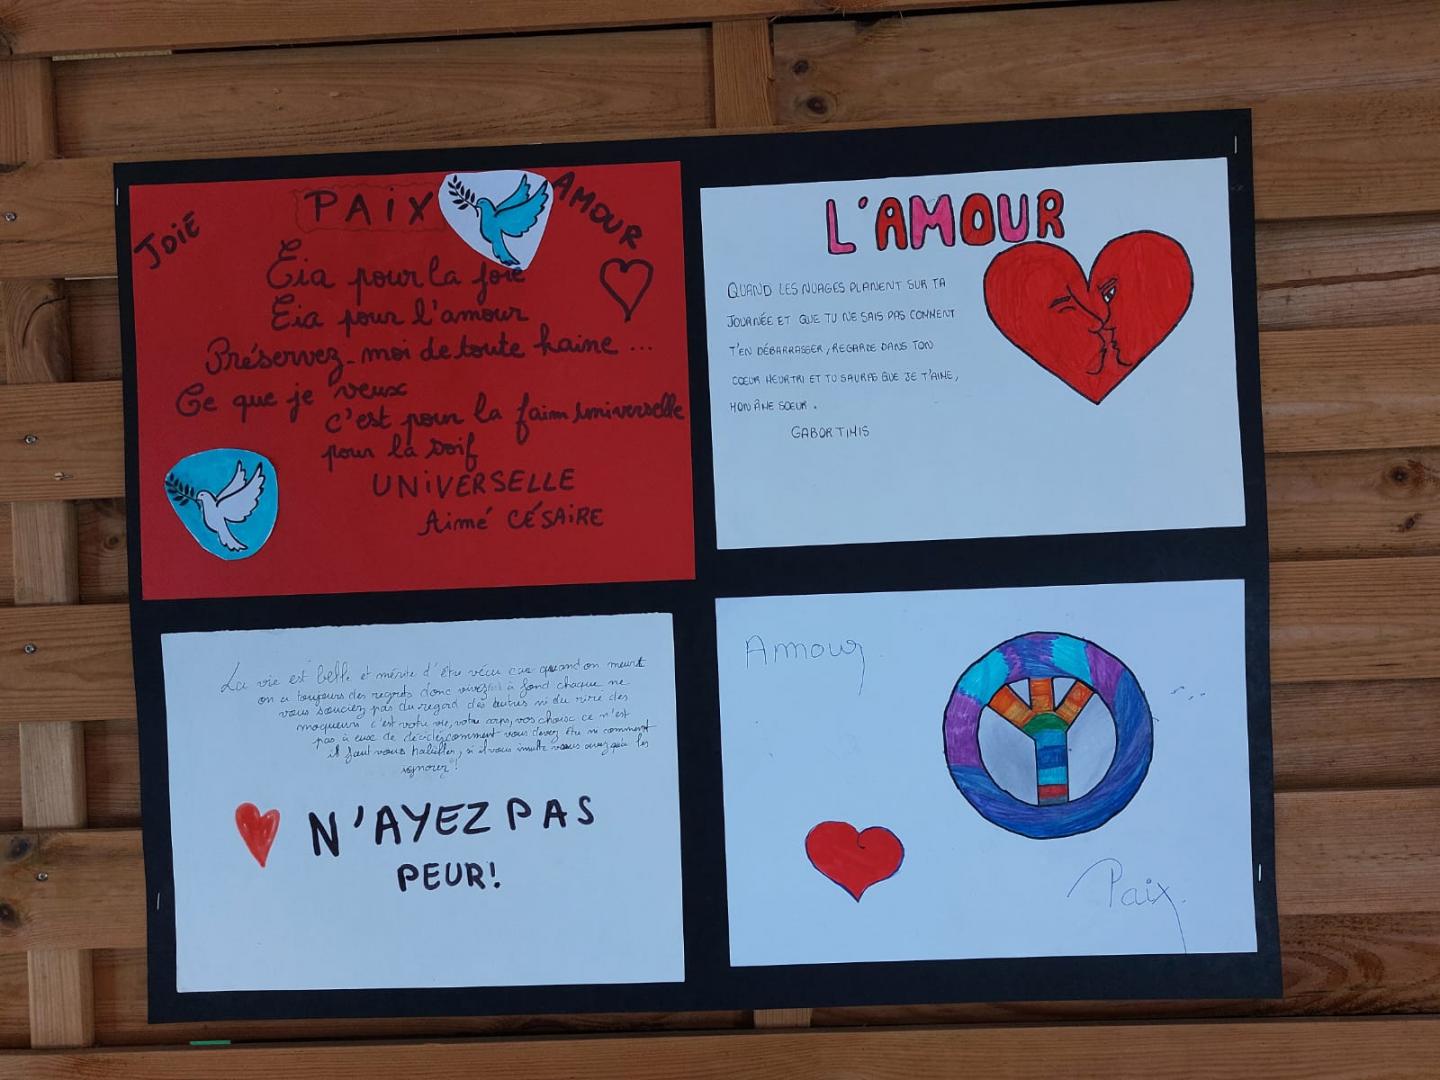 JOIE
PAIX
AMOUR
Eia pour la joie
Eia pour l'amour
Préservez-moi de toute haine ...
Ce que je veux
c'est pour la faim universelle
pour la soif
UNIVERSELLE
Aimé CÉSAIRE
L'AMOUR
QUAND LES NUAGES PLANENT SUR TA
JOURNÉE ET QUE TU NE SAIS PAS COMMENT
T'EN DÉBARRASSER, REGARDE DANS TON
COEUR MEURTRI ET TU SAURAS QUE JE T'AIME,
MON ÂNE SOEUR.
GABOR TIMIS
La vie est belle et mérite d'être vécu car quand on meurt
on a toujours des regrets donc vivez à fond chaque ne
vous souciez pas du regard des autres ni du rire des
moqueurs c'est votre vie, votre corps, vos choix ce n'est
pas à eux de décider comment vous devez être ni comment
il faut vous habiller, si vous
ignorez!
N'AYEZ PAS
PEUR!
Amour
Paix